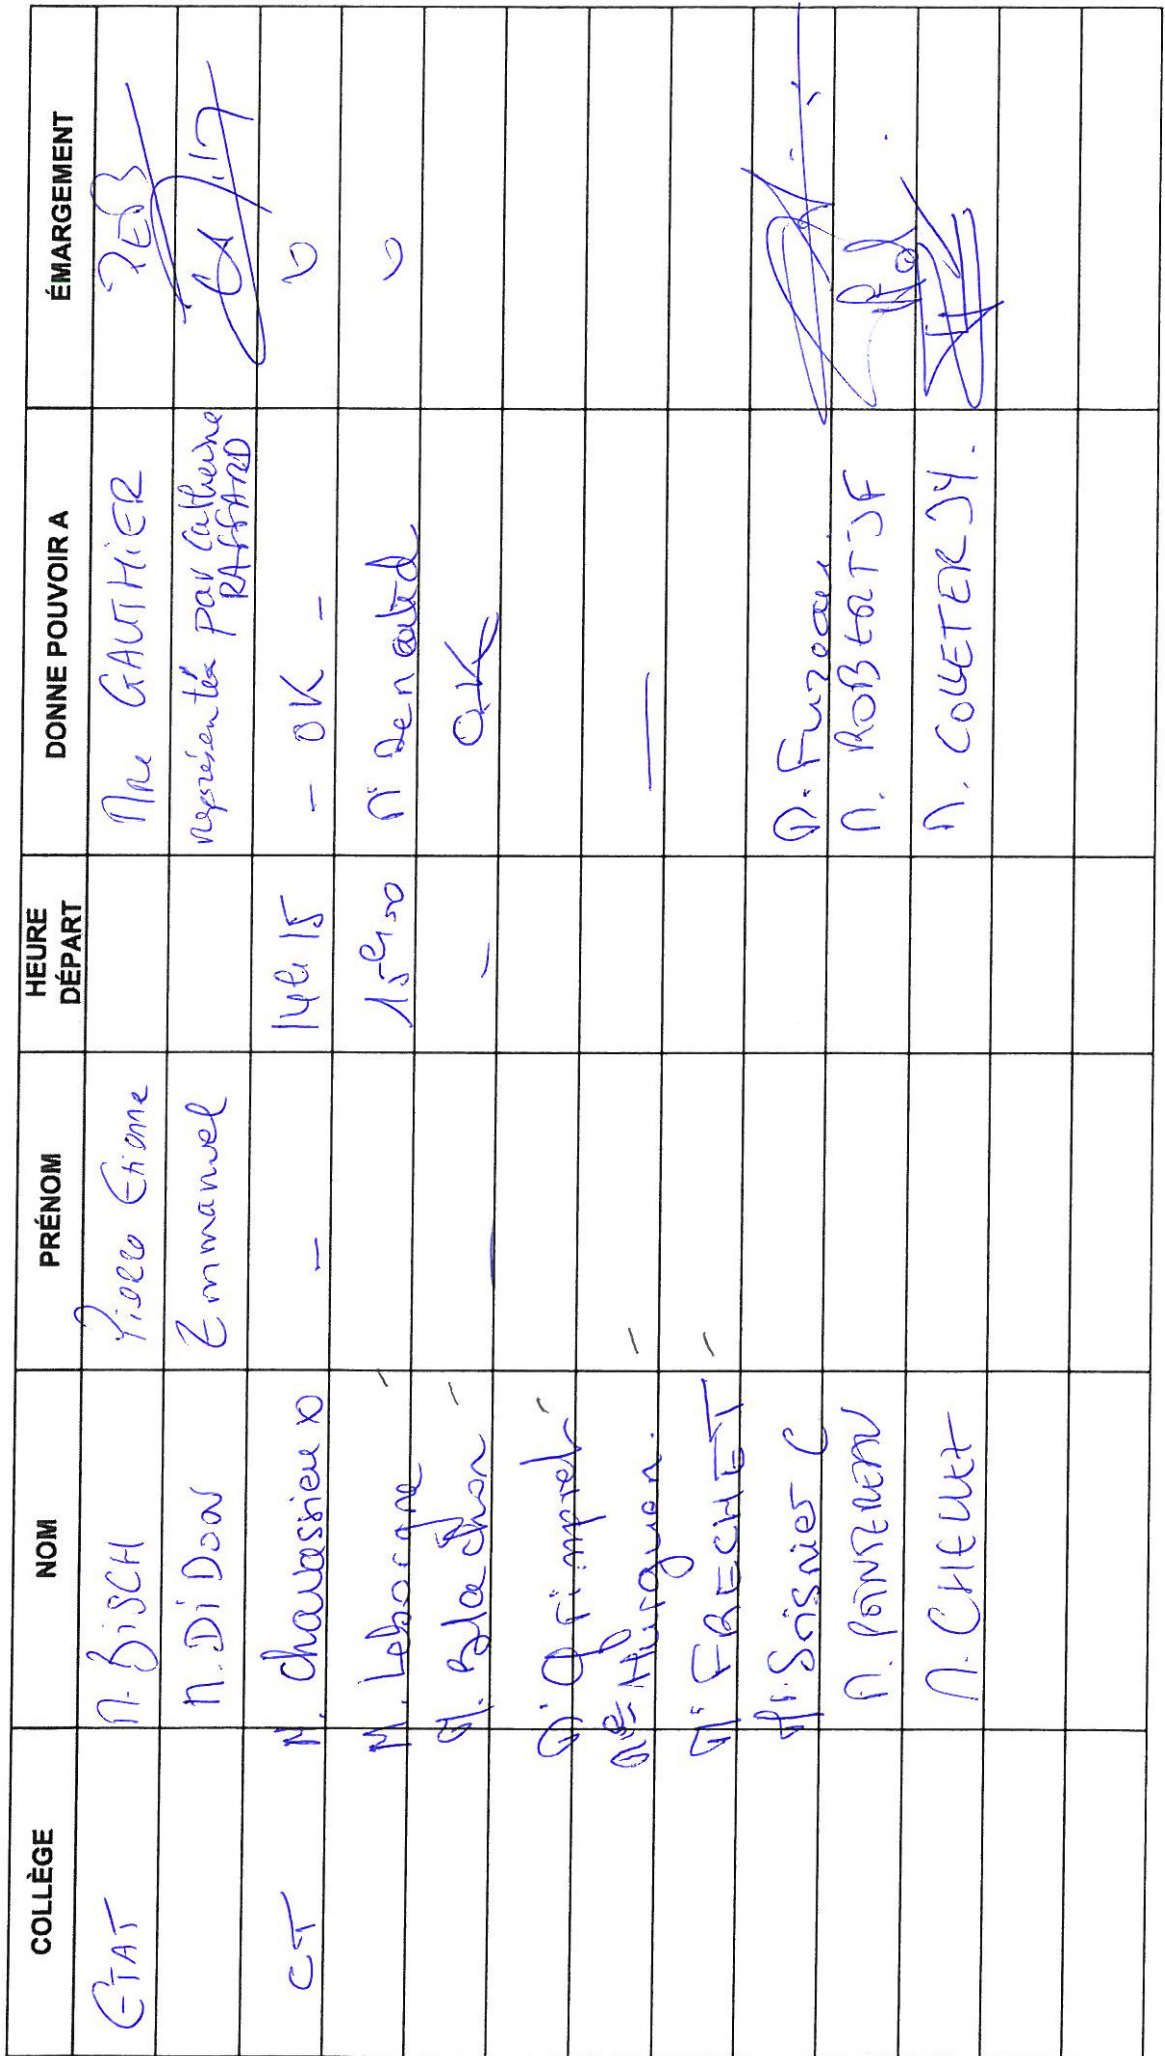 COLLÈGE NOM PRÉNOM HEURE DÉPART DONNE POUVOIR A ÉMARGEMENT
ETAT M. BISCH Pierre Etienne Mme GAUTHIER PEB
M. DiDON Emmanuel représentée par Catherine RAFFARD
CT M. Chavassieux - 14h15 - OK -
M. Leborgne - 15h00 M.
M. Blachon - - OK
M. -
Mme Hurguen. - —
M. FRECHET -
M. C M.
M. POINTEREAU M. ROBERT JF
M. M. COLLETER JY.